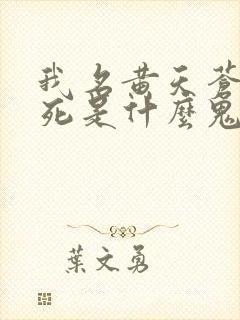 我名黄天蒼
死是什麼鬼
葉文勇